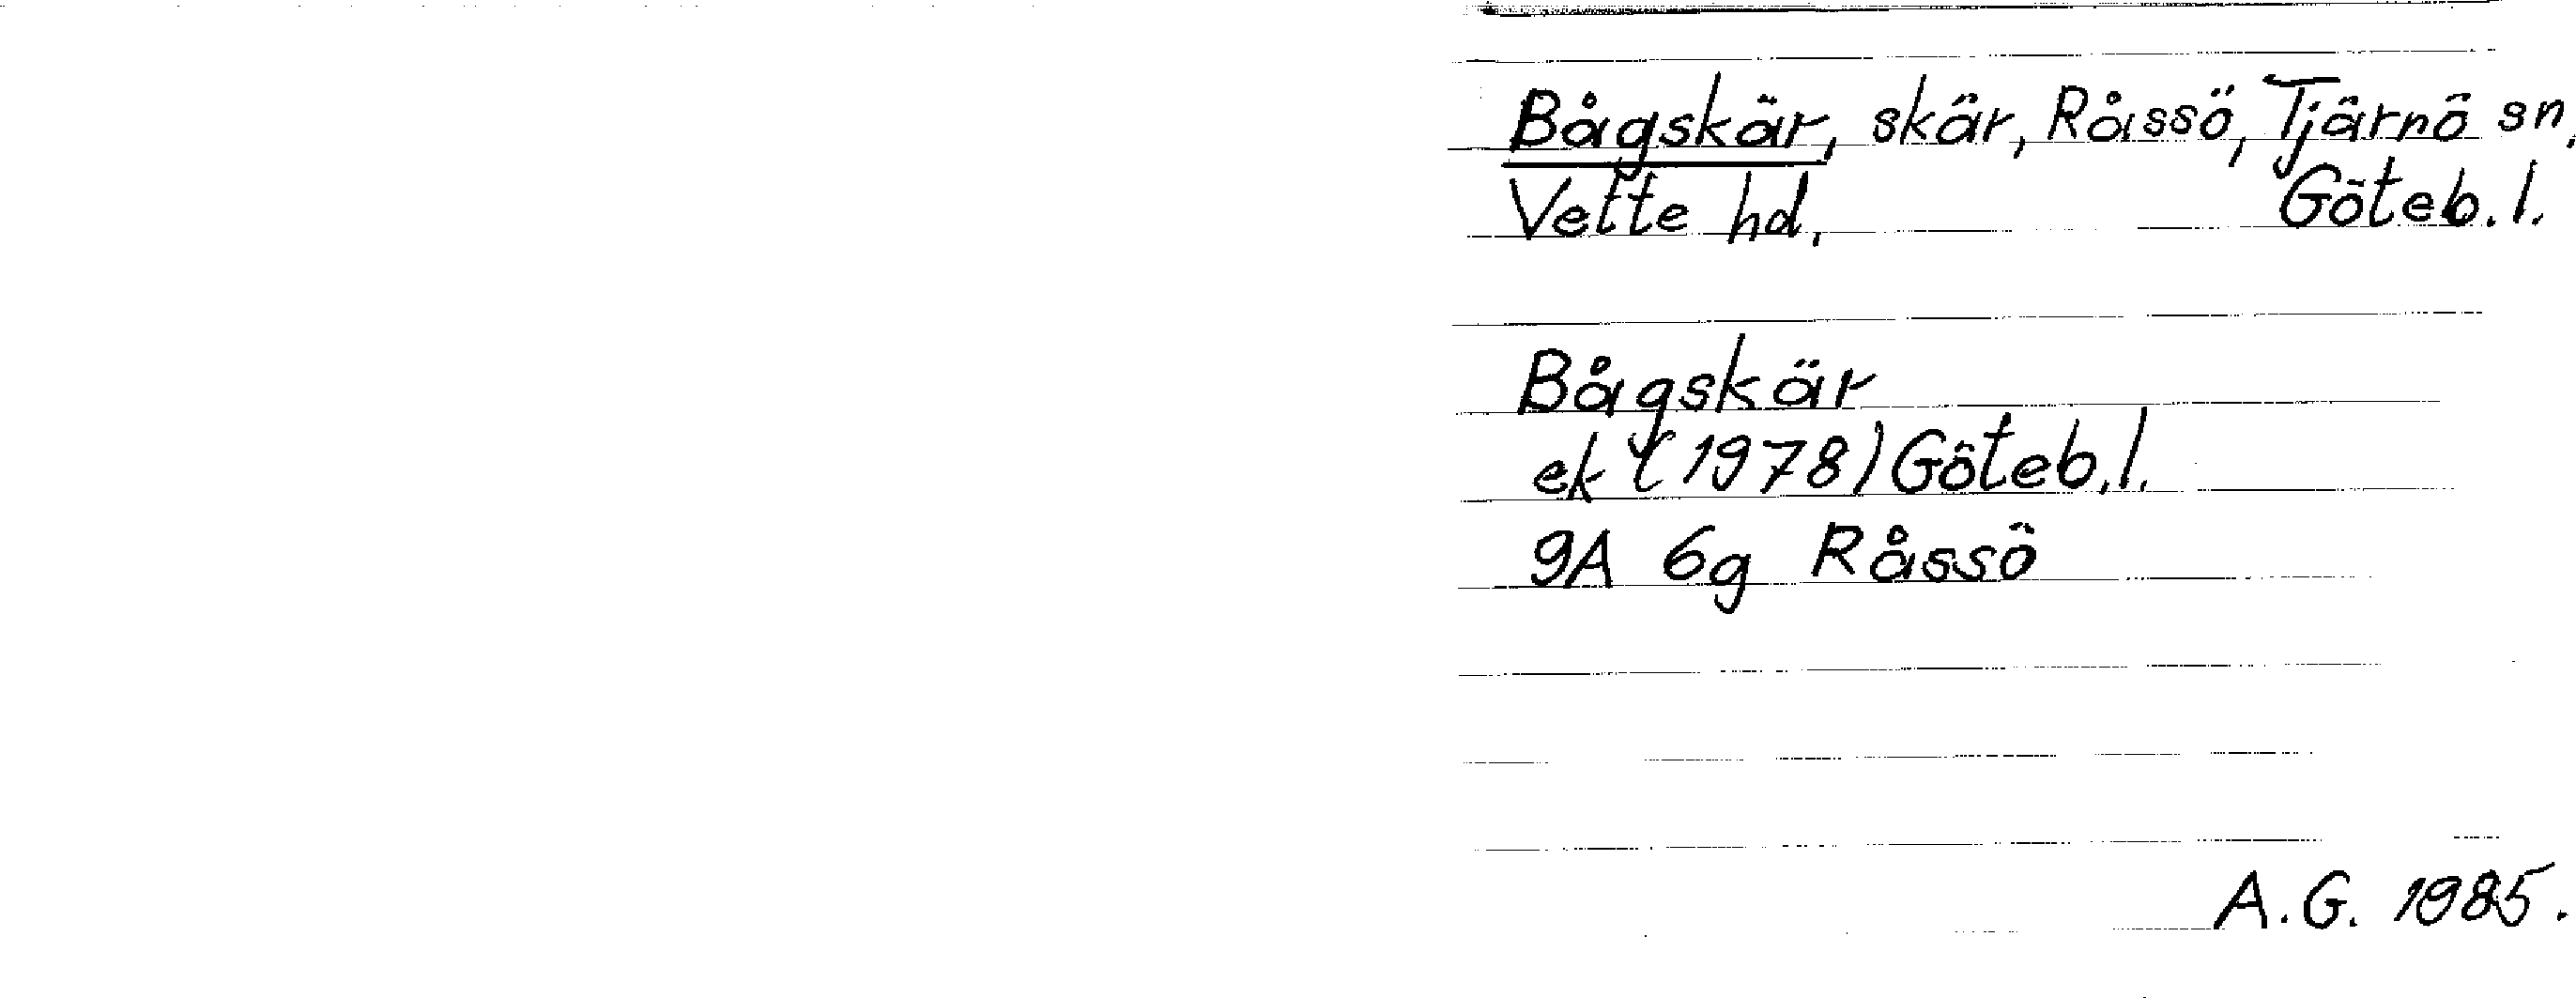 Bågskär, skär, Råssö, Tjärnö sn,
Vette hd. Göteb. l.
Bågskär
ek (1978) Göteb. l.
9A 6g Råssö
A.G. 1985.